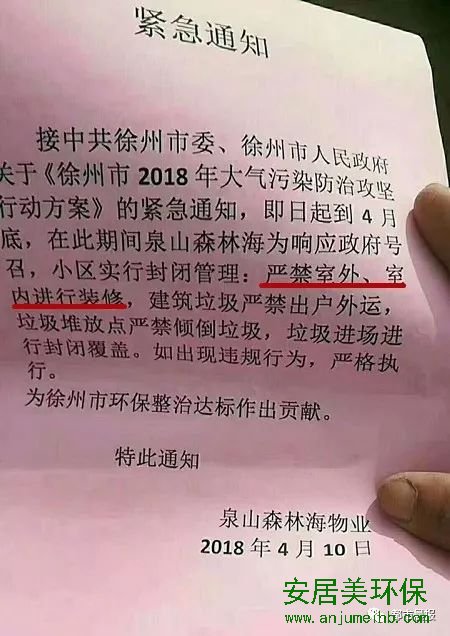 紧急通知
接中共徐州市委、徐州市人民政府
关于《徐州市 2018 年大气污染防治攻坚
行动方案》的紧急通知，即日起到 4 月
底，在此期间泉山森林海为响应政府号
召，小区实行封闭管理：严禁室外、室
内进行装修，建筑垃圾严禁出户外运，
垃圾堆放点严禁倾倒垃圾，垃圾进场进
行封闭覆盖。如出现违规行为，严格执
行。
为徐州市环保整治达标作出贡献。
特此通知
泉山森林海物业
2018 年 4 月 10 日
安居美环保
www.anjumeihb.com
都市晨报